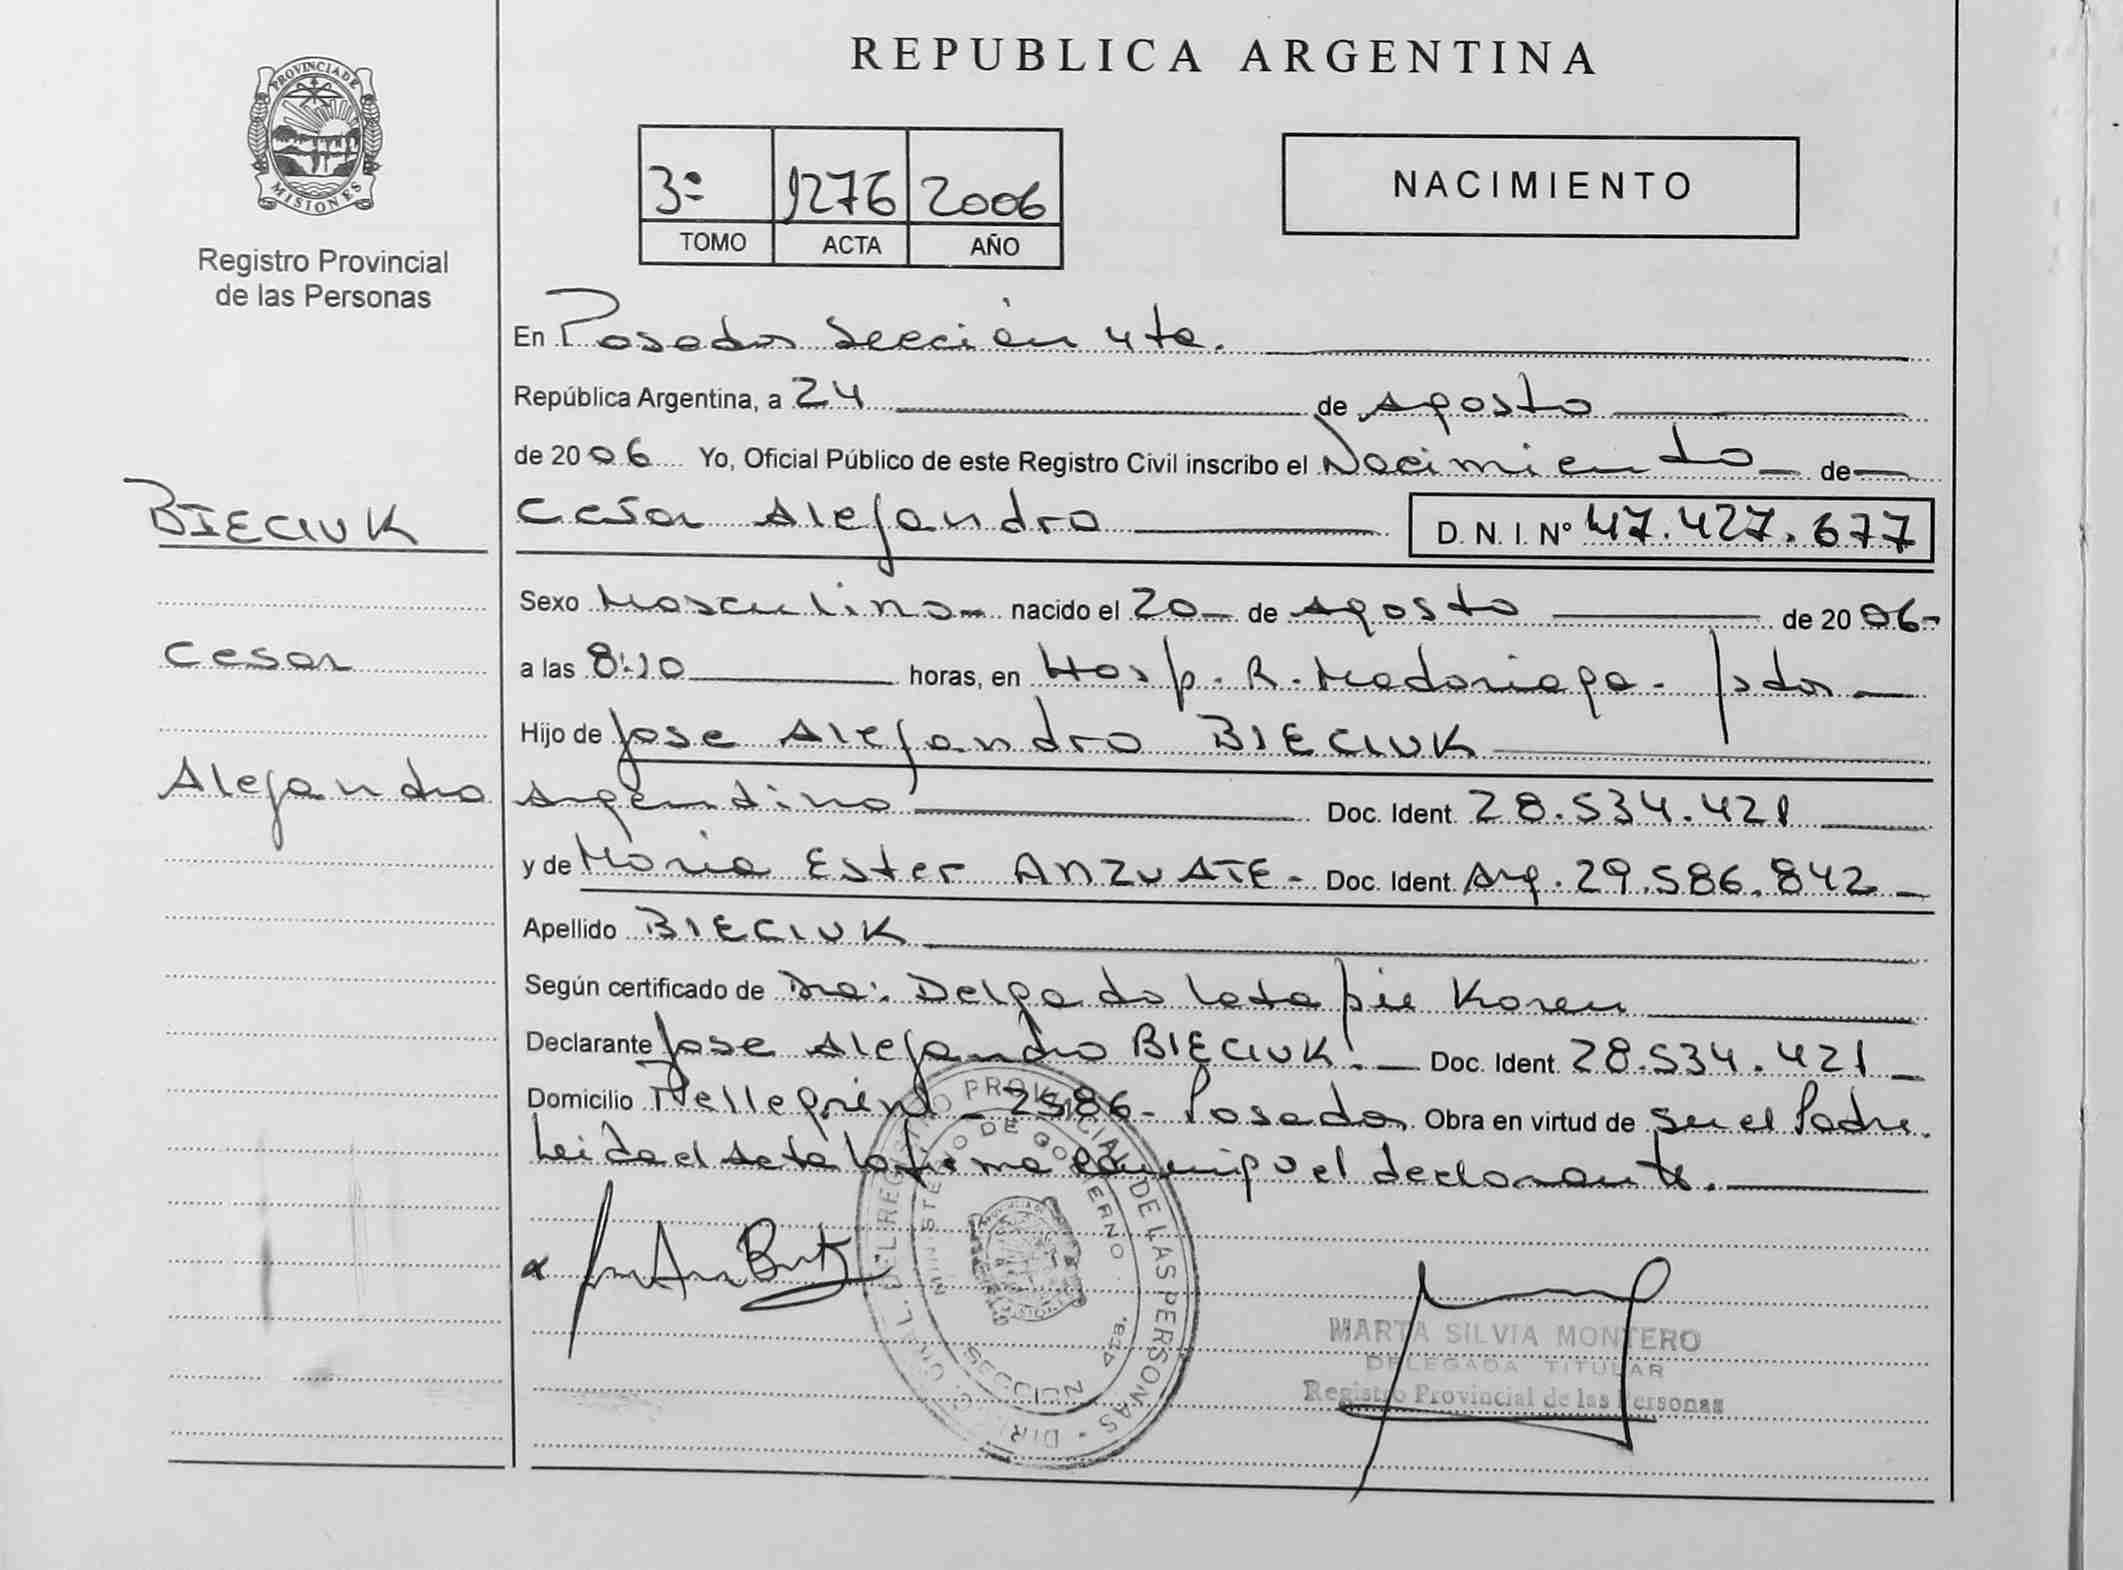 REPUBLICA ARGENTINA
PROVINCIA DE
MISIONES
Registro Provincial
de las Personas
3º 1276 2006
TOMO ACTA AÑO
NACIMIENTO
En Posadas Sección 4ta.
República Argentina, a 24 de Agosto
de 2006 Yo, Oficial Público de este Registro Civil inscribo el Nacimiento de
BIECIUK
Cesar Alejandro D. N. I. Nº 47.427.677
Sexo Masculino nacido el 20 de Agosto de 2006
Cesar
a las 8:10 horas, en Hosp. R. Madariaga - Pdas
Hijo de Jose Alejandro BIECIUK
Alejandro
Argentino Doc. Ident. 28.534.421
y de Maria Ester ANZUATE - Doc. Ident. Arg. 29.586.842
Apellido BIECIUK
Según certificado de Dra: Delgado Latapie Karen
Declarante Jose Alejandro BIECIUK. Doc. Ident. 28.534.421
Domicilio Pellegrini - 2586 - Posadas Obra en virtud de Ser el Padre.
Leida el Acta la firma conmigo el declarante.
DIREC. GRAL. DEL REGISTRO PROVINCIAL DE LAS PERSONAS
MINISTERIO DE GOBIERNO
SECCION 4ta.
MARTA SILVIA MONTERO
DELEGADA TITULAR
Registro Provincial de las Personas